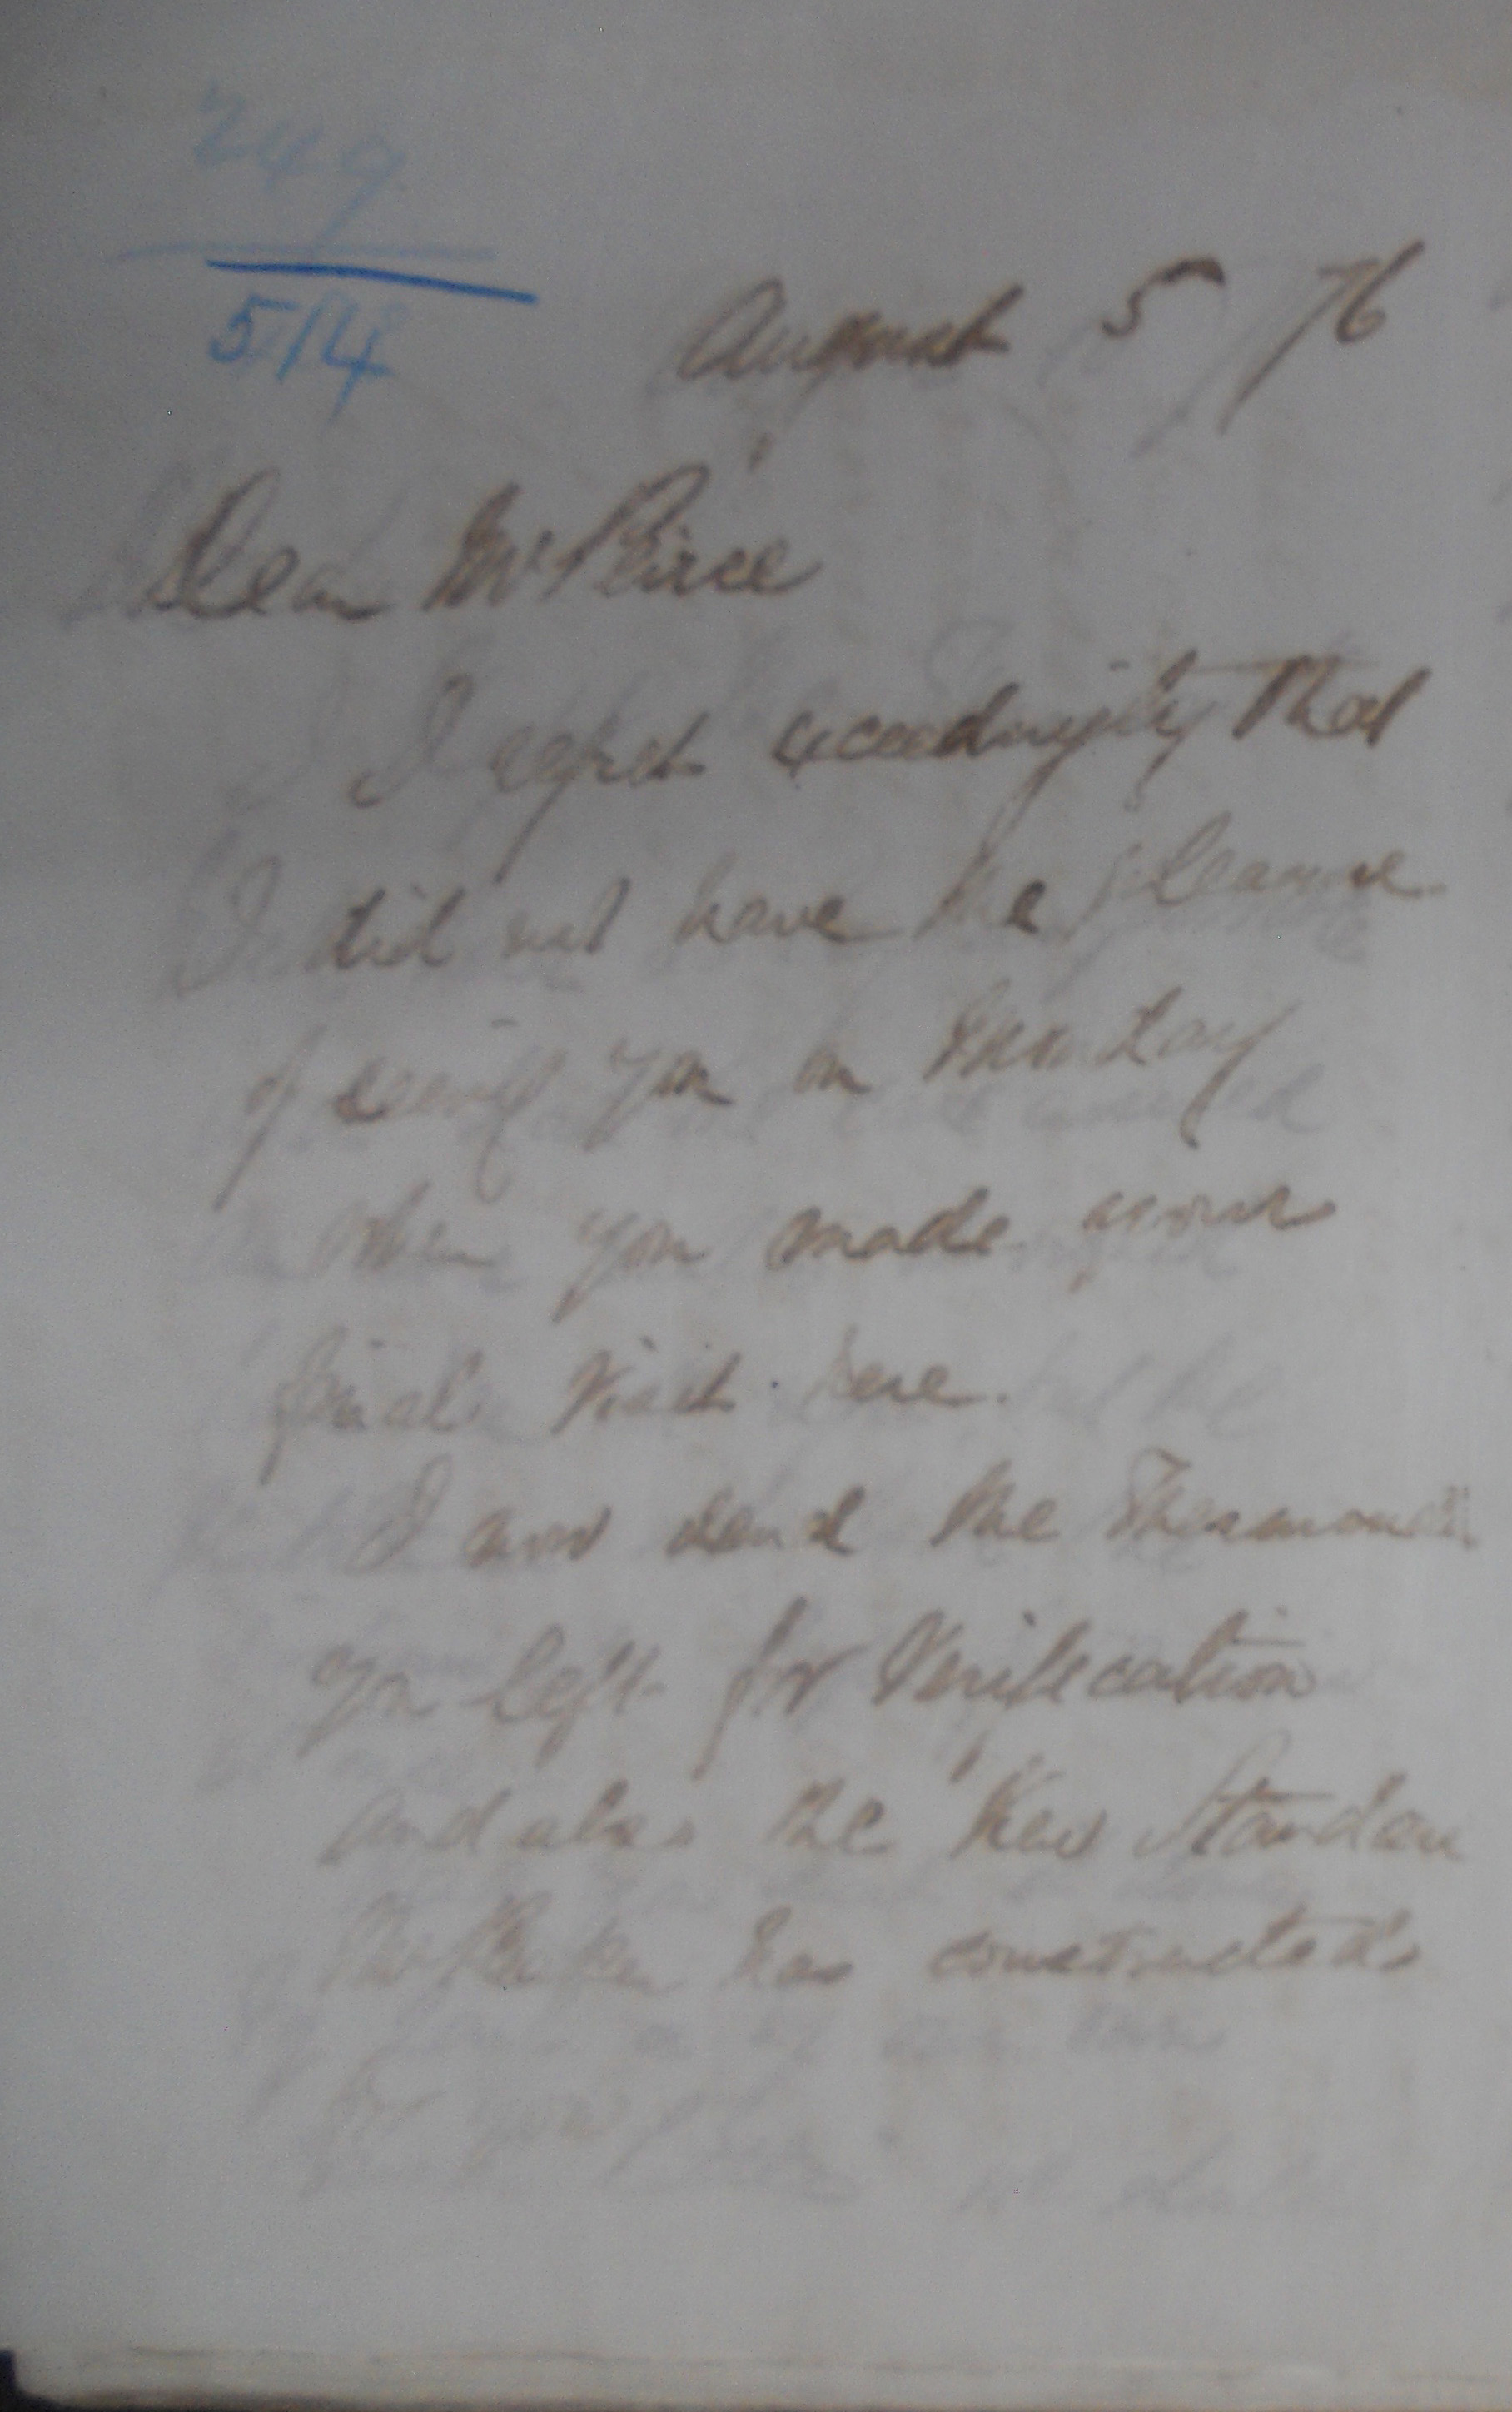 249
514
August 5 / 76
Dear Mr Peirce
I regret exceedingly that
I did not have the pleasure
of seeing you on Monday
when you made your
final visit here.
I now send the Thermomet
you left for Verification
and also the Kew Standar
Mr Baker has constructed
for you